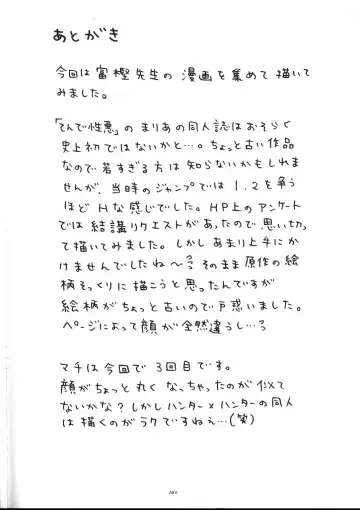 あとがき
今回は富樫先生の漫画を集めて描いて
みました。
「てんで性悪」のまりあの同人誌はおそらく
史上初ではないかと…。ちょっと古い作品
なので若すぎる方は知らないかもしれま
せんが、当時のジャンプでは1.2を争う
ほどHな感じでした。HP上のアンケート
では結講リクエストがあったので思い切っ
て描いてみました。しかしあまり上手にか
けませんでしたね〜 そのまま原作の絵
柄そっくりに描こうと思ったんですが
絵柄がちょっと古いので戸惑いました。
ページによって顔が全然違うし…
マチは今回で3回目です。
顔がちょっと丸くなっちゃったのが似て
ないかな?しかしハンター×ハンターの同人
は描くのがラクですねえ…(笑)